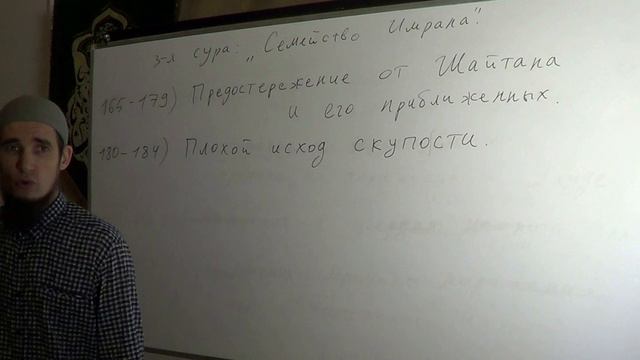 3-я сура: „Семейство Имрана".
165-179) Предостережение от Шайтана
и его приближенных.
180-184) Плохой исход скупости.